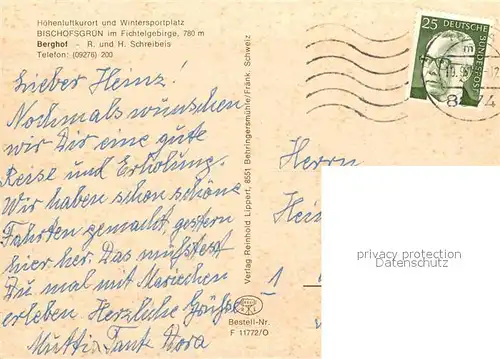 Höhenluftkurort und Wintersportplatz
BISCHOFSGRÜN im Fichtelgebirge, 780 m
Berghof - R. und H. Schreibeis
Telefon: (09276) 200
Lieber Heinz!
Nochmals wünschen
wir Dir eine gute
Reise und Erholung.
Wir haben schon schöne
Fahrten gemacht, gestern
hier her. Das müßtest
Du mal mit Mariechen
erleben Herzliche Grüße
Mutti u. Tante Dora
Verlag Reinhold Lippert, 8551 Behringersmühle/Fränk. Schweiz
Bestell-Nr.
F 11772/O
25 DEUTSCHE
BUNDESPOST
Herrn
Hein
privacy protection
Datenschutz